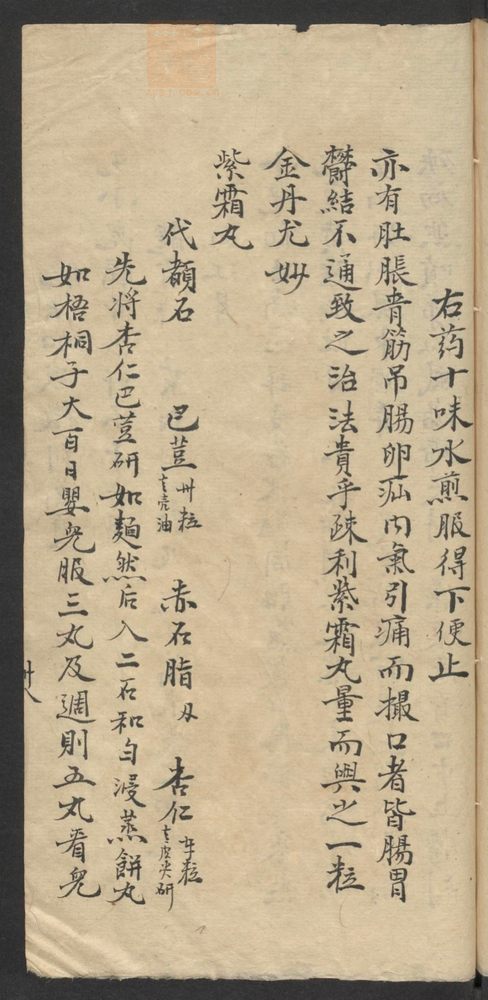 右药十味水煎服得下便止
亦有肚脹青筋吊腸卵疝内氣引痛而撮口者皆腸胃
欝結不通致之治法貴乎疎利紫霜丸量而與之一粒
金丹尤妙
紫霜丸
代赭石　巴荳卅粒去壳油　赤石脂　杏仁粒去皮尖研
先将杏仁巴荳研如麵然后入二石和匀浸蒸餅丸
如梧桐子大百日嬰兒服三丸及週則五丸看兒
卅八